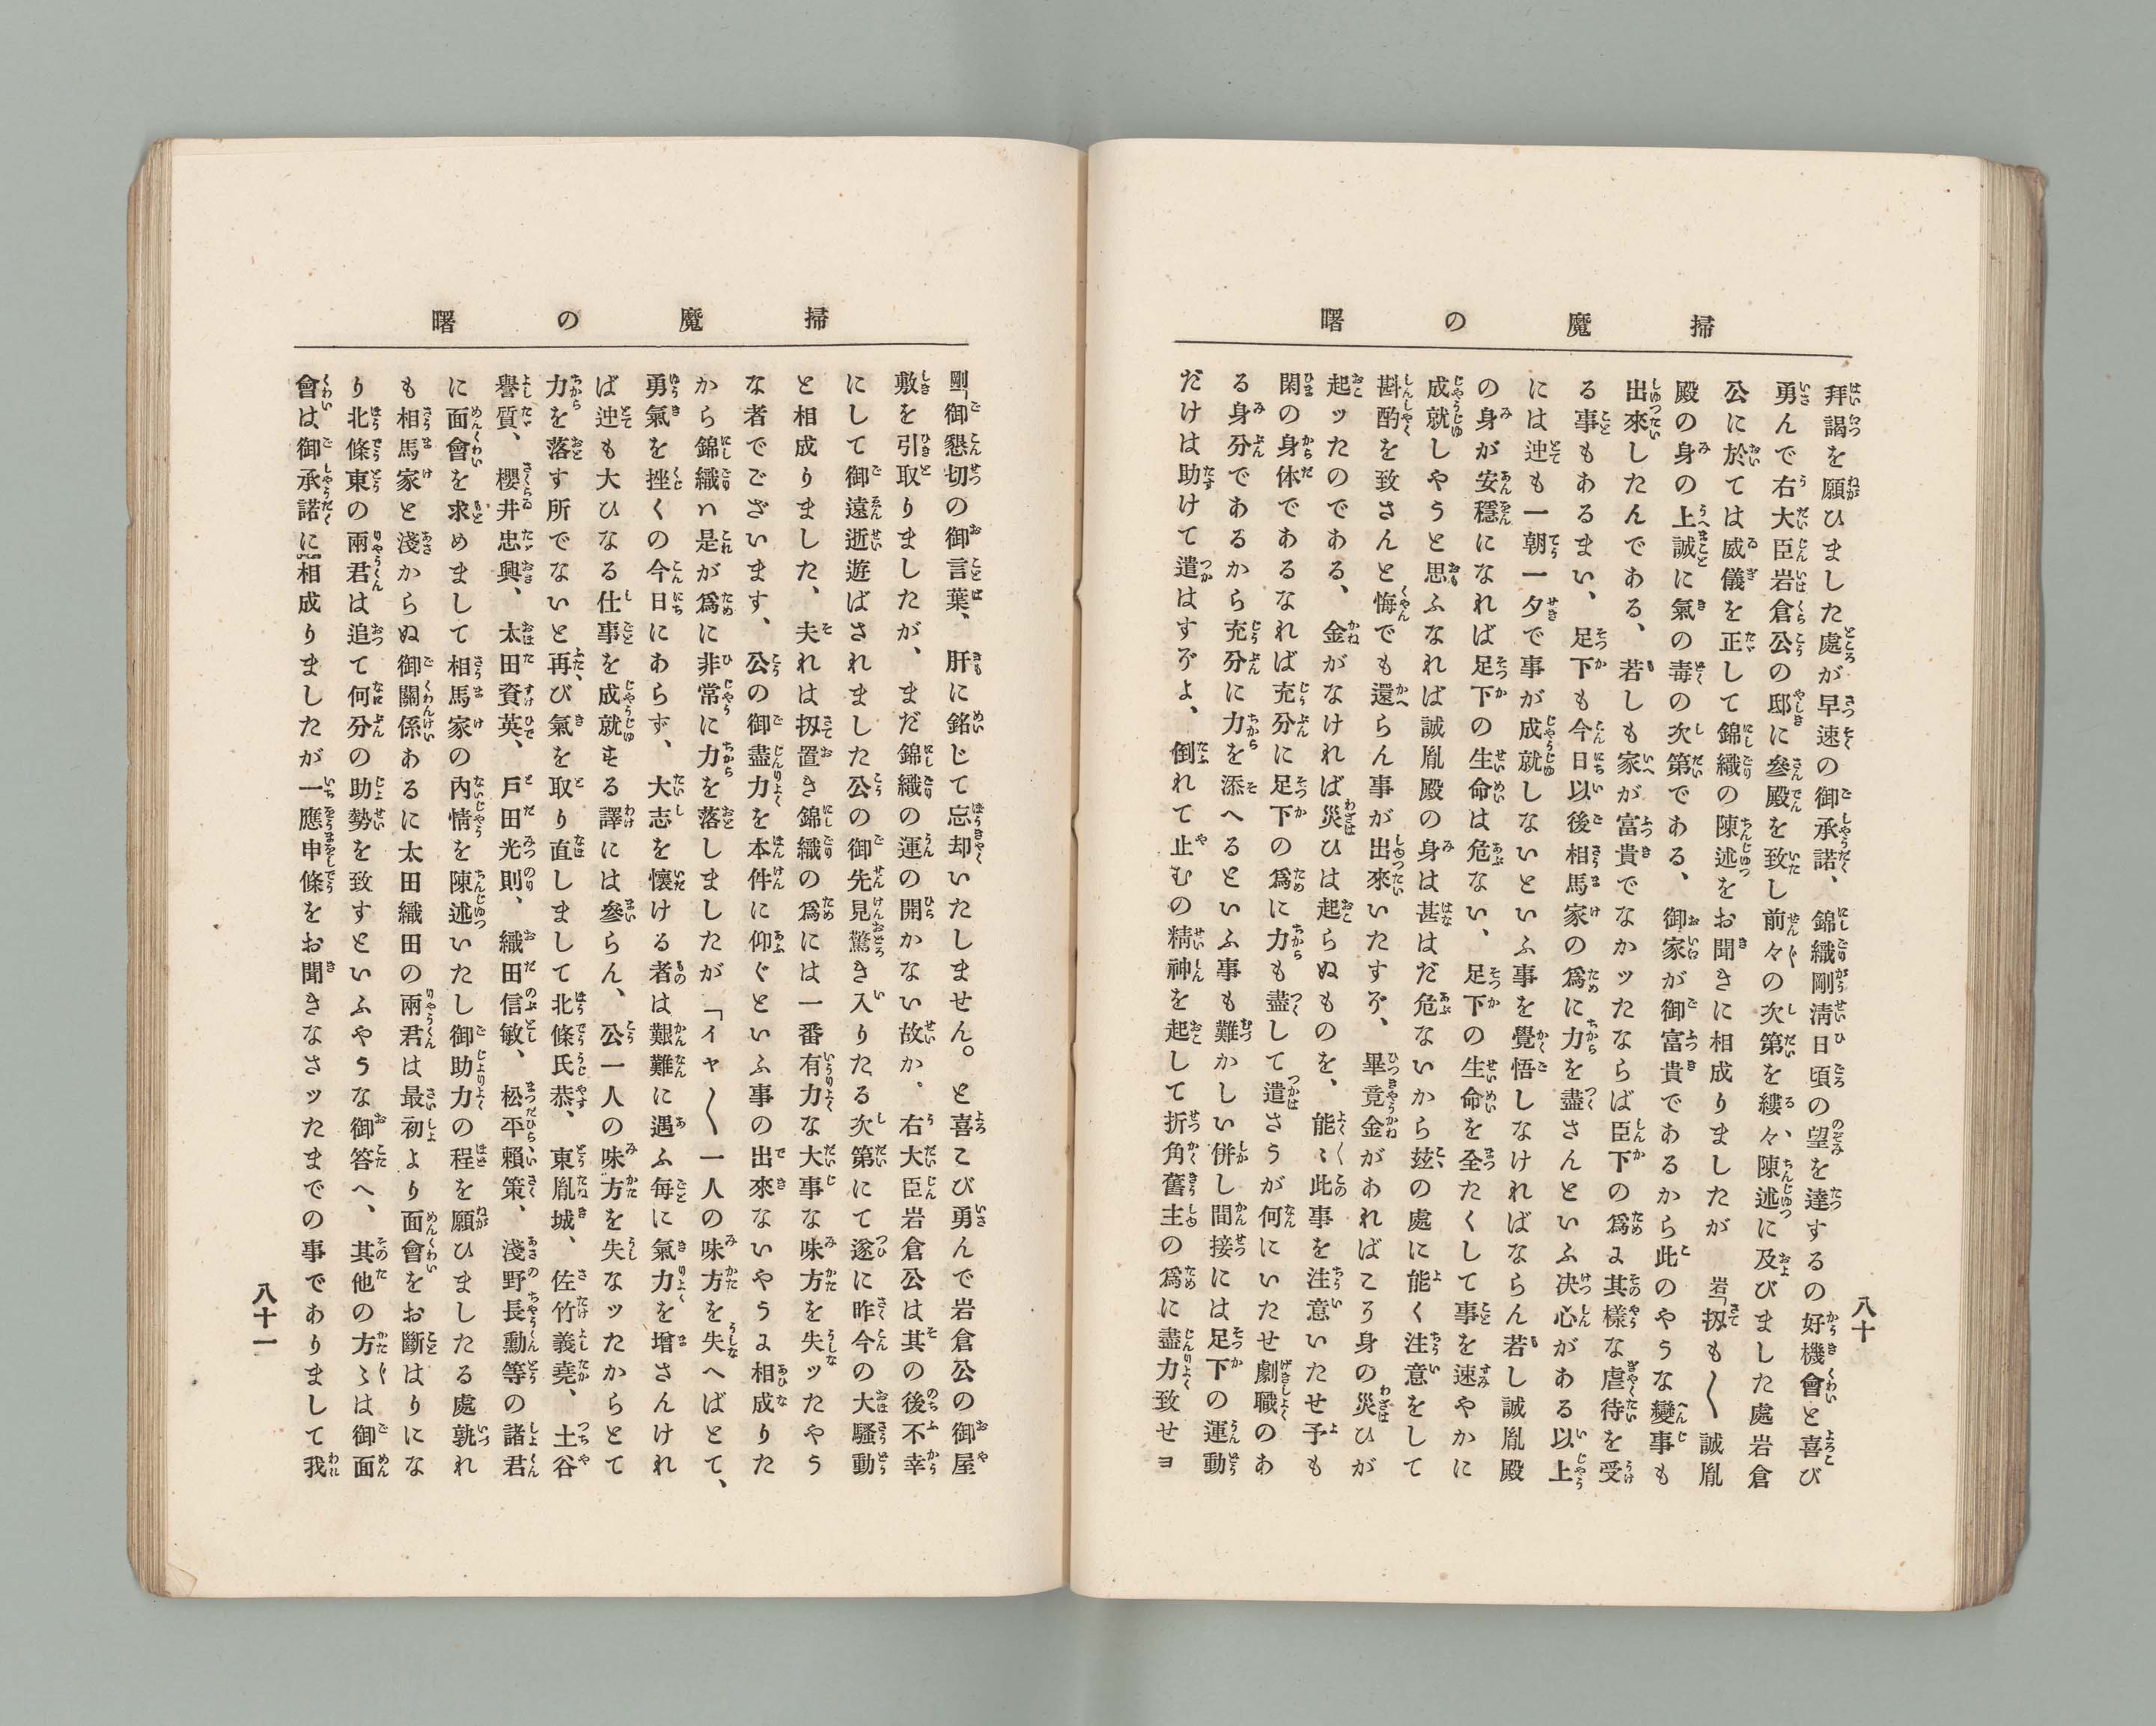 掃魔の曙
拝謁を願ひました處が早速の御承諾、錦織剛清日頃の望を達するの好機會と喜び
勇んで右大臣岩倉公の邸に參殿を致し前々の次第を縷々陳述に及びました處岩倉
公に於ては威儀を正して錦織の陳述をお聞きに相成りましたが岩「扨も〳〵誠胤
殿の身の上誠に氣の毒の次第である、御家が御富貴であるから此のやうな變事も
出來したんである、若しも家が富貴でなかッたならば臣下の爲よ其樣な虐待を受
る事もあるまい、足下も今日以後相馬家の爲に力を盡さんといふ决心がある以上
には迚も一朝一夕で事が成就しないといふ事を覺悟しなければならん若し誠胤殿
の身が安穩になれば足下の生命は危ない、足下の生命を全たくして事を速やかに
成就しやうと思ふなれば誠胤殿の身は甚はだ危ないから玆の處に能く注意をして
斟酌を致さんと悔でも還らん事が出來いたすゾ、畢竟金があればこう身の災ひが
起ッたのである、金がなければ災ひは起らぬものを、能〻此事を注意いたせ予も
閑の身体であるなれば充分に足下の爲に力も盡して遣さうが何にいたせ劇職のあ
る身分であるから充分に力を添へるといふ事も難かしい併し間接には足下の運動
だけは助けて遣はすゾよ、倒れて止むの精神を起して折角舊主の爲に盡力致せヨ
八十
掃魔の曙
剛「御懇切の御言葉、肝に銘じて忘却いたしません。と喜こび勇んで岩倉公の御屋
敷を引取りましたが、まだ錦織の運の開かない故か、右大臣岩倉公は其の後不幸
にして御遠逝遊ばされました公の御先見驚き入りたる次第にて遂に昨今の大騷動
と相成りました、夫れは扨置き錦織の爲には一番有力な大事な味方を失ッたやう
な者でございます、公の御盡力を本件に仰ぐといふ事の出來ないやうよ相成りた
から錦織ハ是が爲に非常に力を落しましたが「イヤ〳〵一人の味方を失へばとて、
勇氣を挫くの今日にあらず、大志を懷ける者は艱難に遇ふ毎に氣力を增さんけれ
ば迚も大ひなる仕事を成就せる譯には參らん、公一人の味方を失なッたからとて
力を落す所でないと再び氣を取り直しまして北條氏恭、東胤城、佐竹義堯、土谷
擧質、櫻井忠興、太田資英、戸田光則、織田信敏、松平賴策、淺野長勳等の諸君
に面會を求めまして相馬家の内情を陳述いたし御助力の程を願ひましたる處孰れ
も相馬家と淺からぬ御關係あるに太田織田の兩君は最初より面會をお斷はりにな
り北條東の兩君は追て何分の助勢を致すといふやうな御答へ、其他の方〻は御面
會は御承諾に相成りましたが一應申條をお聞きなさッたまでの事でありまして我
八十一